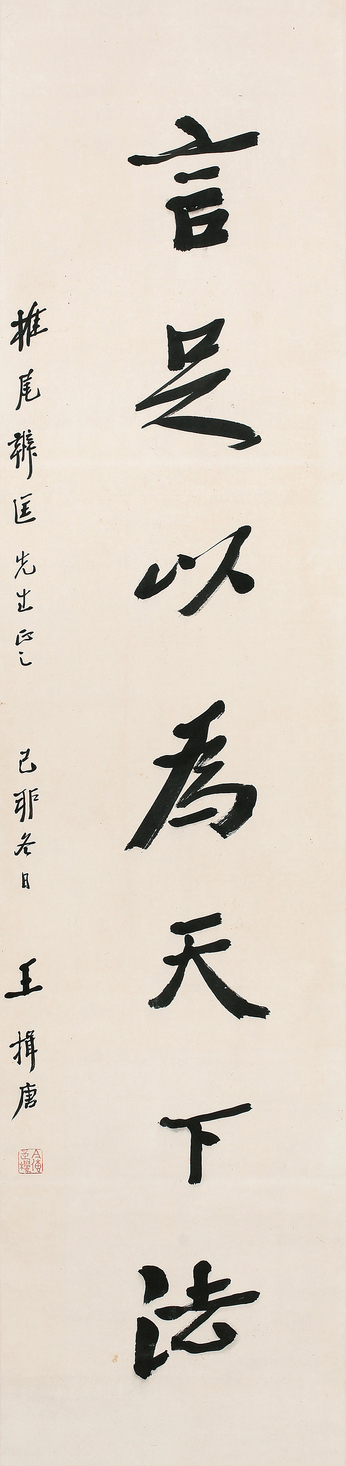 言足以為天下法
椎尾辨匡先生正之 己卯冬日 王揖唐